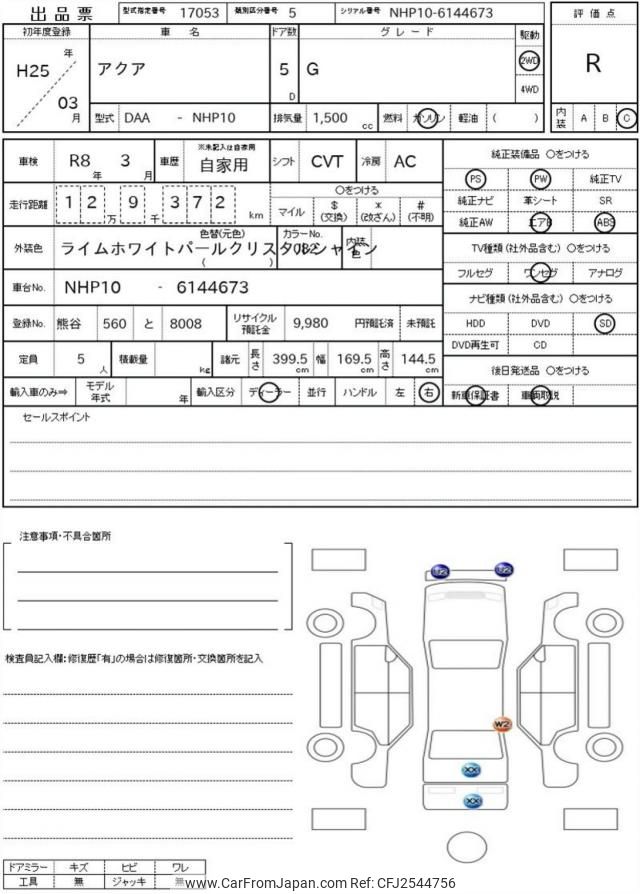 出品票 型式指定番号 17053 類別区分番号 5 シリアル番号 NHP10-6144673
評価点
初年度登録 車名 ドア数 グレード 駆動
H25 年 03 月
アクア 5 D G 2WD 4WD
R
型式 DAA - NHP10 排気量 1,500 cc 燃料 ガソリン 軽油 ( )
内装 A B C
車検 R8 年 3 月 車歴 ※未記入は自家用 自家用 シフト CVT 冷房 AC
純正装備品 ○をつける
PS PW 純正TV
走行距離 12 万 9 千 372 km
○をつける
マイル $ (交換) * (改ざん) # (不明)
純正ナビ 革シート SR
純正AW エアB ABS
外装色 色替(元色) カラーNo. 内装色
ライムホワイトパールクリスタルシャイン
( )
082
TV種類(社外品含む) ○をつける
フルセグ ワンセグ アナログ
車台No. NHP10 - 6144673
ナビ種類(社外品含む) ○をつける
HDD DVD SD
DVD再生可 CD
登録No. 熊谷 560 と 8008 リサイクル預託金 9,980 円預託済 未預託
定員 5 人 積載量 kg 諸元 長さ 399.5 cm 幅 169.5 cm 高さ 144.5 cm
後日発送品 ○をつける
新車保証書 車両取説
輸入車のみ⇒ モデル年式 年 輸入区分 ディーラー 並行 ハンドル 左 右
セールスポイント
注意事項・不具合箇所
U2 U2
検査員記入欄:修復歴「有」の場合は修復箇所・交換箇所を記入
W2
XX
XX
ドアミラー キズ ヒビ ワレ
工具 無 ジャッキ 無
www.CarFromJapan.com Ref: CFJ2544756